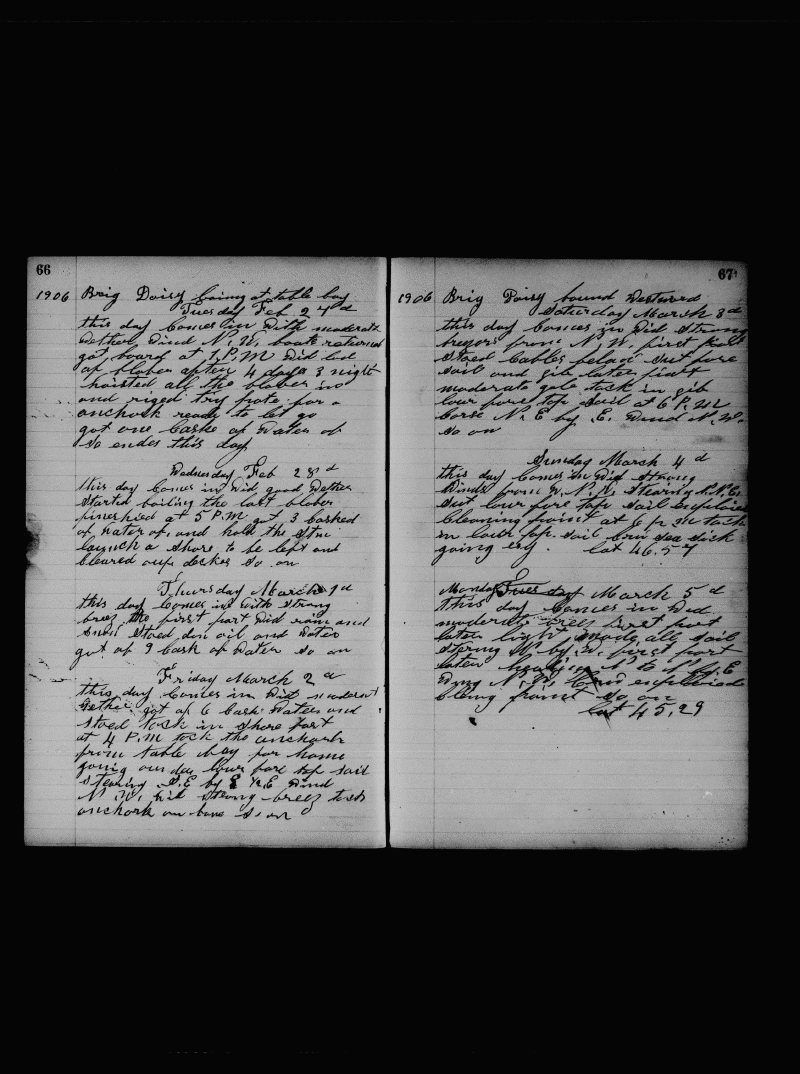 66
1906 Brig Daisy laing at table bay
Tuesday Feb 27 d
this day Comes in With moderate
Wether Wind N. W. boats returned
got board at 1 P.M Did bad
of blober after 4 days 3 night
hoisted all the blober in
and riged try pots for a
anchork ready to let go
got one Caske of Water of
So endes this day
Wednesday Feb 28 d
this day Comes in Wid good Wether
Started boiling the last blober
pineshied at 5 P.M got 3 Casked
of Water of and hold the
launch a Shore to be left and
Cleared oup deckes So on
Thursday March 1 d
this day Comes in With Strong
breez the first part Did rain and
Snow Stoed don oil and Water
got of 9 Cask of Water So on
Friday March 2 d
this day Comes in Wid moderat
Wether got of 6 Cask Water and
Stoed tock in Shore fast
at 4 P.M tock the anchork
from table bay for home
going onder lour fore top sail
Stearing S.E by E ½ E Wind
N. W. Wid Strong breez tock
anchork on bow So on
67
1906 Brig Daisy bound Westward
Saturday March 3 d
this day Comes in Wid Strong
breezes from N. W. first part
Stoed Cables below Sut fore
Sail and gib later part
moderate gale tock in gib
lour fore top Sail at 6 P.M
Corse N. E by E. Wind N. W.
So on
Sunday March 4 d
this day Comes in Wid Strong
Winds from W. N. W. Stearing N. N. E.
Sut lour fore top Sail
Cleaning at 6 p m tock
in lour top Sail Sea Sick
going . lat 46.57
Monday Tues day March 5 d
this day Comes in Wid
moderate breez first part
later light made all Sail
Stering N. by W. first part
later N to N by E
Wing N. W.
So on
lat 45,29